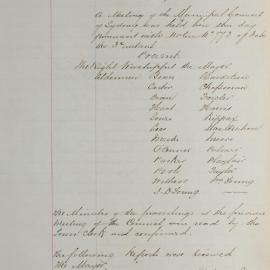 A Meeting of the Municipal Council
of Sydney was held this day
pursuant with Notice No 173 of date
the 3rd instant
Present
The Right Worshipful the Mayor
Aldermen Bean
Carter Chapman
Dean
Hart Harris
Jones Kippax
Lees
Meeks
O'Connor
Parker Playfair
Poole Taylor
Withers Wm Young
J. D. Young
The Minutes of the proceedings at the previous
Meeting of the Council were read by the
Town Clerk and confirmed.
The following Reports were received
The Mayor